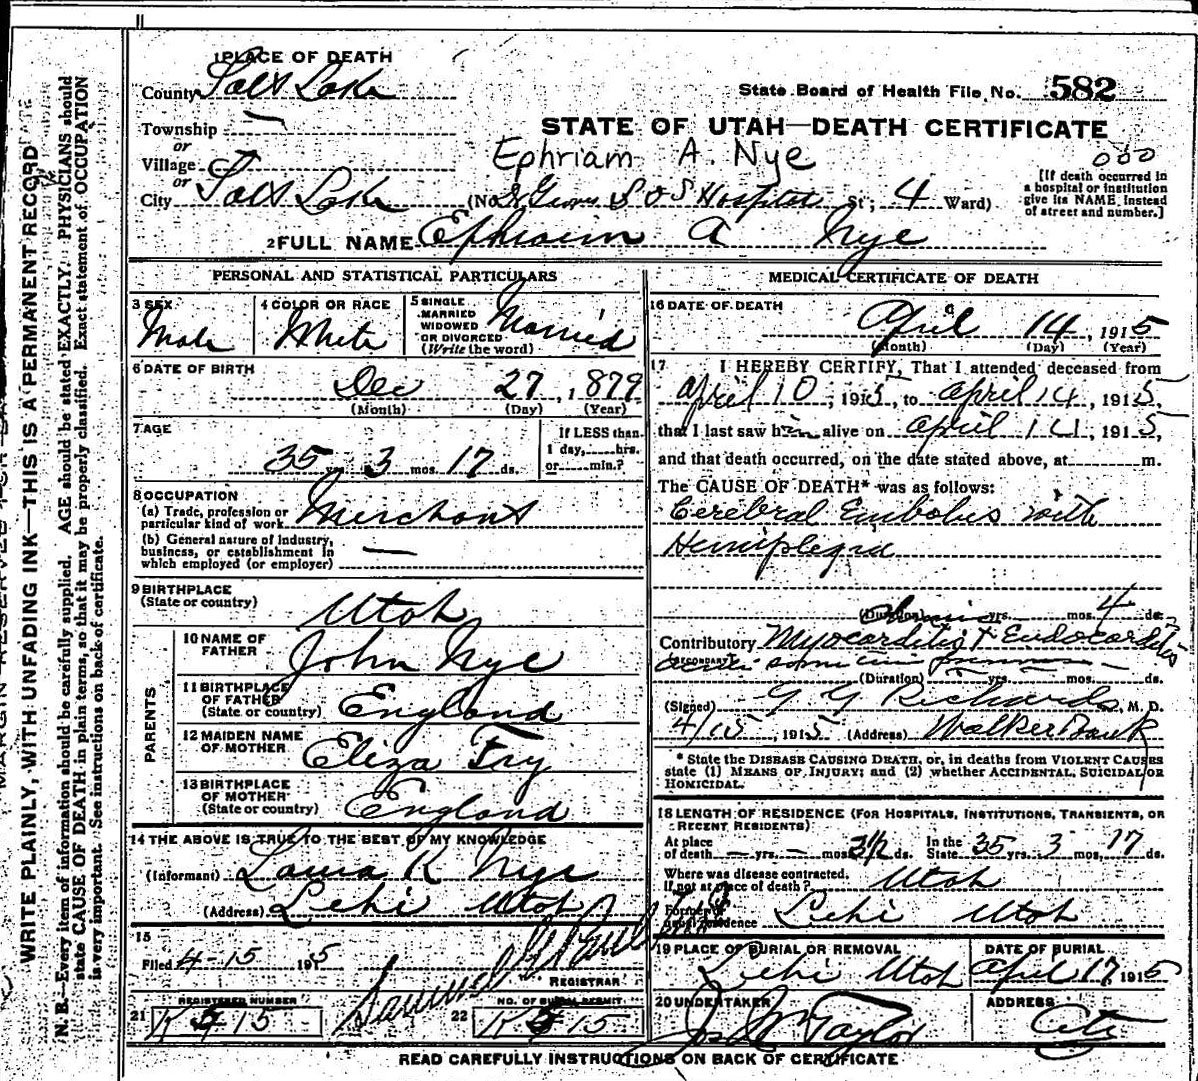 1 PLACE OF DEATH
County Salt Lake
State Board of Health File No. 582
Township —
or
Village
or
City Salt Lake
STATE OF UTAH—DEATH CERTIFICATE
Ephriam A. Nye
000
(No. Hospital St; 4 Ward)
[If death occurred in
a hospital or institution
give its NAME instead
of street and number.]
2 FULL NAME Ephraim A Nye
PERSONAL AND STATISTICAL PARTICULARS
3 SEX
Male
4 COLOR OR RACE
White
5 SINGLE
MARRIED
WIDOWED
OR DIVORCED
(Write the word)
Married
6 DATE OF BIRTH
Dec 27, 1879
(Month) (Day) (Year)
7 AGE
35 yrs. 3 mos. 17 ds.
If LESS than
1 day, hrs.
or min.?
8 OCCUPATION
(a) Trade, profession or
particular kind of work Merchant
(b) General nature of industry,
business, or establishment in
which employed (or employer) —
9 BIRTHPLACE
(State or country) Utah
PARENTS
10 NAME OF
FATHER John Nye
11 BIRTHPLACE
OF FATHER
(State or country) England
12 MAIDEN NAME
OF MOTHER Eliza Fry
13 BIRTHPLACE
OF MOTHER
(State or country) England
14 THE ABOVE IS TRUE TO THE BEST OF MY KNOWLEDGE
(Informant) Laura K Nye
(Address) Lehi Utah
15
Filed 4-15 1915
Samuel G Paul
REGISTRAR
21 REGISTERED NUMBER
K 515
22 NO. OF BURIAL PERMIT
K 515
MEDICAL CERTIFICATE OF DEATH
16 DATE OF DEATH
April 14, 1915
(Month) (Day) (Year)
17 I HEREBY CERTIFY, That I attended deceased from
April 10, 1915, to April 14, 1915,
that I last saw him alive on April 14, 1915,
and that death occurred, on the date stated above, at m.
The CAUSE OF DEATH* was as follows:
Cerebral Embolus with
Hemiplegia
(Duration) yrs. mos. 4 ds.
Contributory Myocarditis & Endocarditis
(SECONDARY)
(Duration) yrs. mos. ds.
(Signed) G G Richards, M. D.
4/15, 1915 (Address) Walker Bank
* State the DISEASE CAUSING DEATH, or, in deaths from VIOLENT CAUSES
state (1) MEANS OF INJURY; and (2) whether ACCIDENTAL, SUICIDAL OR
HOMICIDAL.
18 LENGTH OF RESIDENCE (FOR HOSPITALS, INSTITUTIONS, TRANSIENTS, OR
RECENT RESIDENTS)
At place
of death — yrs. — mos. 3½ ds. In the
State 35 yrs. 3 mos. 17 ds.
Where was disease contracted,
if not at place of death? Utah
Former or
usual residence Lehi Utah
19 PLACE OF BURIAL OR REMOVAL
Lehi Utah
DATE OF BURIAL
April 17, 1915
20 UNDERTAKER
Jos Wm Taylor
ADDRESS
City
READ CAREFULLY INSTRUCTIONS ON BACK OF CERTIFICATE
WRITE PLAINLY, WITH UNFADING INK—THIS IS A PERMANENT RECORD
N. B.—Every item of information should be carefully supplied. AGE should be stated EXACTLY. PHYSICIANS should
state CAUSE OF DEATH in plain terms, so that it may be properly classified. Exact statement of OCCUPATION
is very important. See instructions on back of certificate.